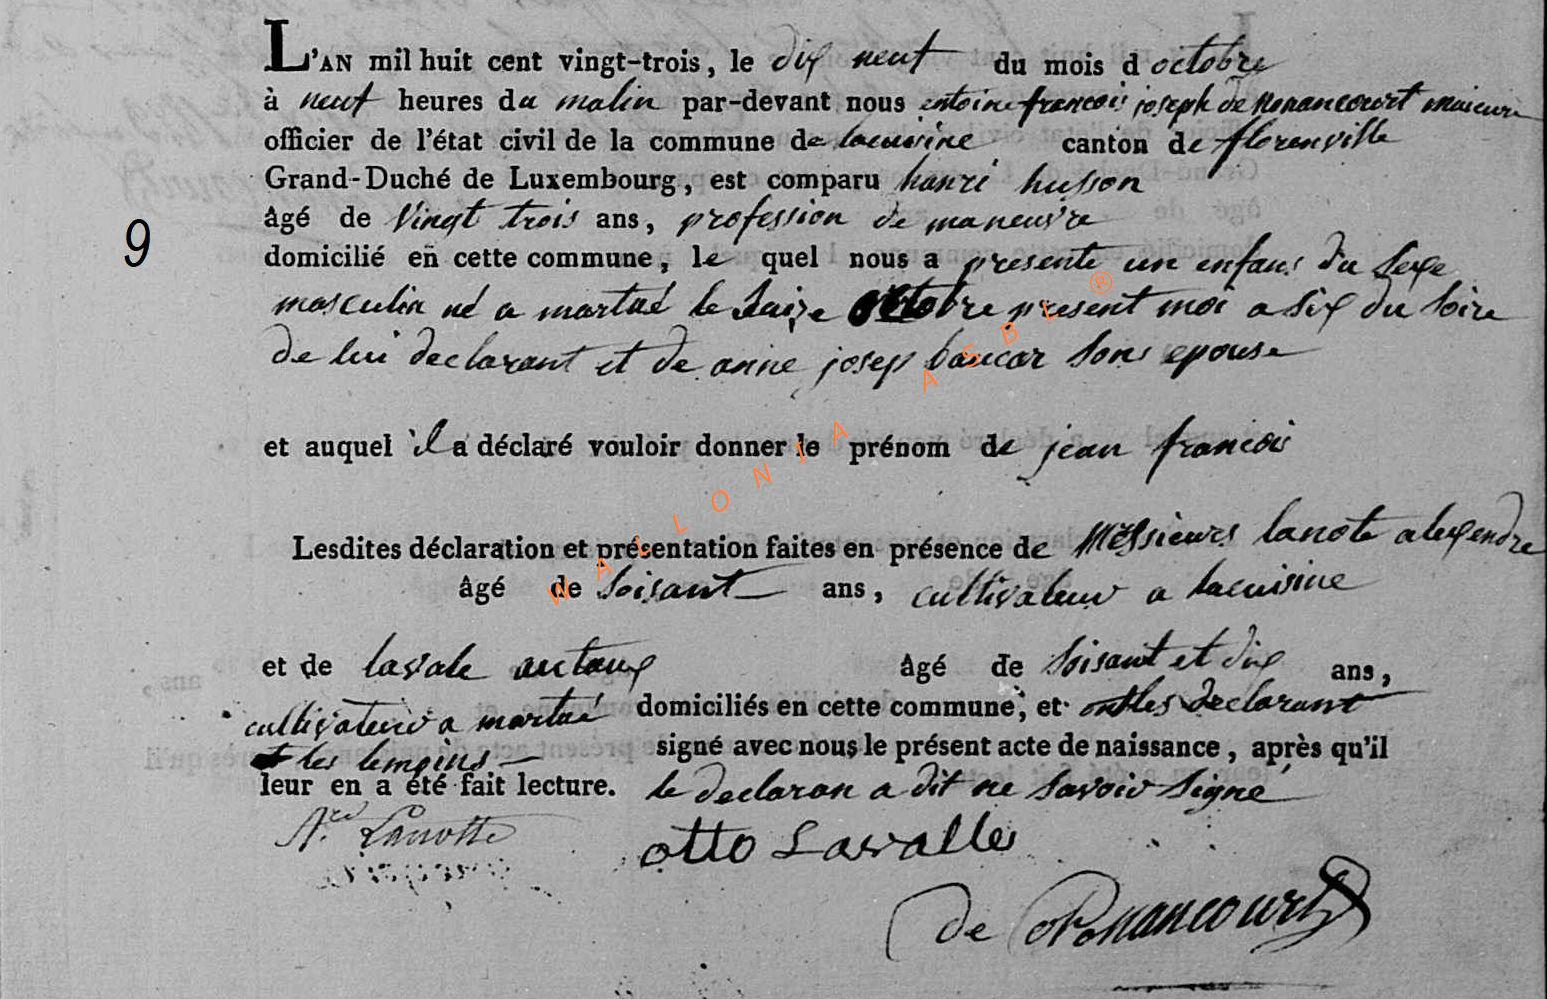 L'AN mil huit cent vingt-trois, le dix neuf du mois d octobre
à neuf heures du matin par-devant nous antoine francois joseph de Nonancourt maieure
officier de l'état civil de la commune de lacuisine canton de florenville
Grand-Duché de Luxembourg, est comparu hanri husson
âgé de Vingt trois ans, profession de maneuvre
9
domicilié en cette commune, le quel nous a presente un enfans du sexe
masculin né a martué le Saize octobre present moi a six du soire
de lui declarant et de anne josep baucar sons epouse
et auquel il a déclaré vouloir donner le prénom de jean francois
Lesdites déclaration et présentation faites en présence de Messieurs lanote alexendre
âgé de soisant ans, cultivateur a lacuisine
et de lavale autoux âgé de soisant et dix ans,
cultivateur a martué domiciliés en cette commune, et ont les declarant
et les temoins signé avec nous le présent acte de naissance, après qu'il
leur en a été fait lecture. le declaran a dit ne savoir signé
Lanotte
otto Lavalle
de Nonancourt
WALLONIA ASBL ®